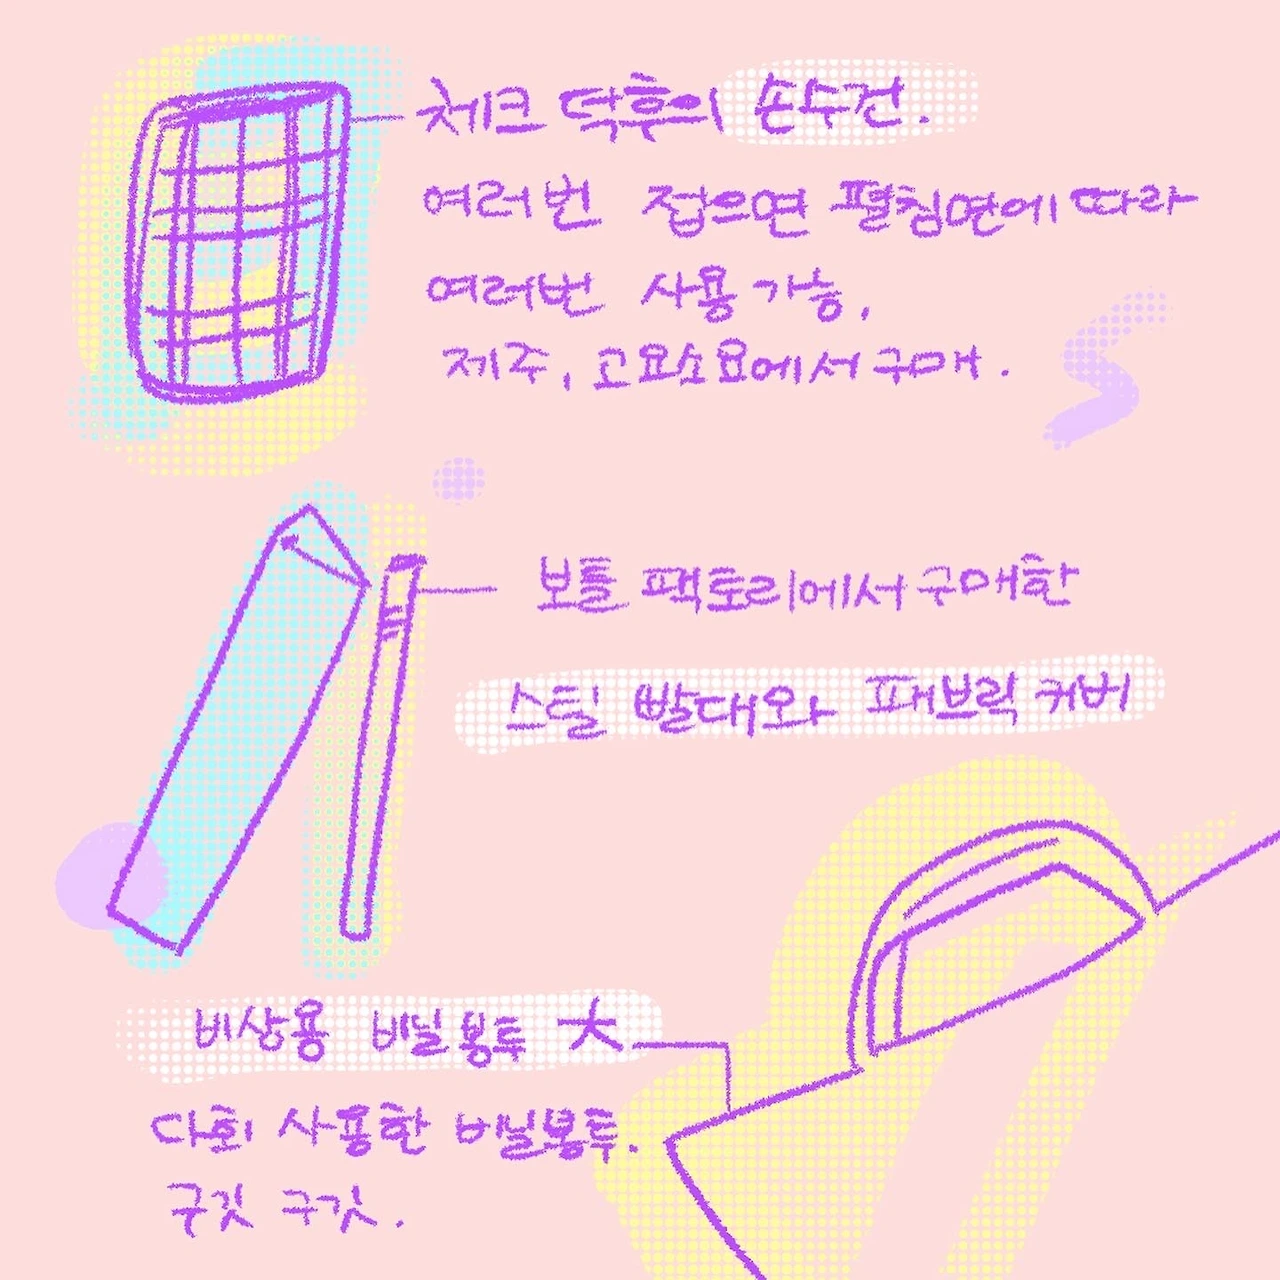 체크 덕후의 손수건.
여러번 접으면 펼침면에 따라
여러번 사용 가능,
제주, 고요소요에서 구매.
보틀 팩토리에서 구매한
스틸 빨대와 패브릭 커버
비상용 비닐봉투 大
다회 사용한 비닐봉투.
구깃 구깃.